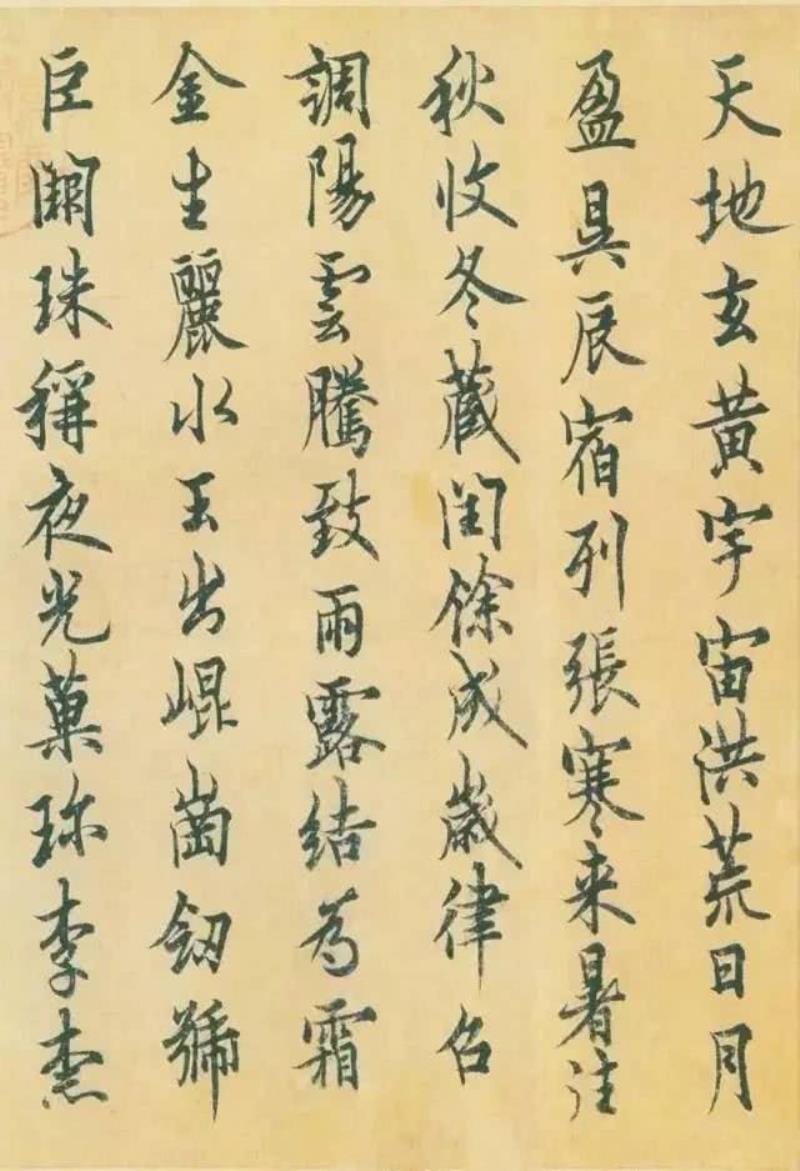 天地玄黃宇宙洪荒日月
盈昃辰宿列張寒来暑往
秋收冬藏閏餘成歲律召
調陽雲騰致雨露結為霜
金生麗水玉出崐崗釼號
巨闕珠稱夜光菓珎李柰